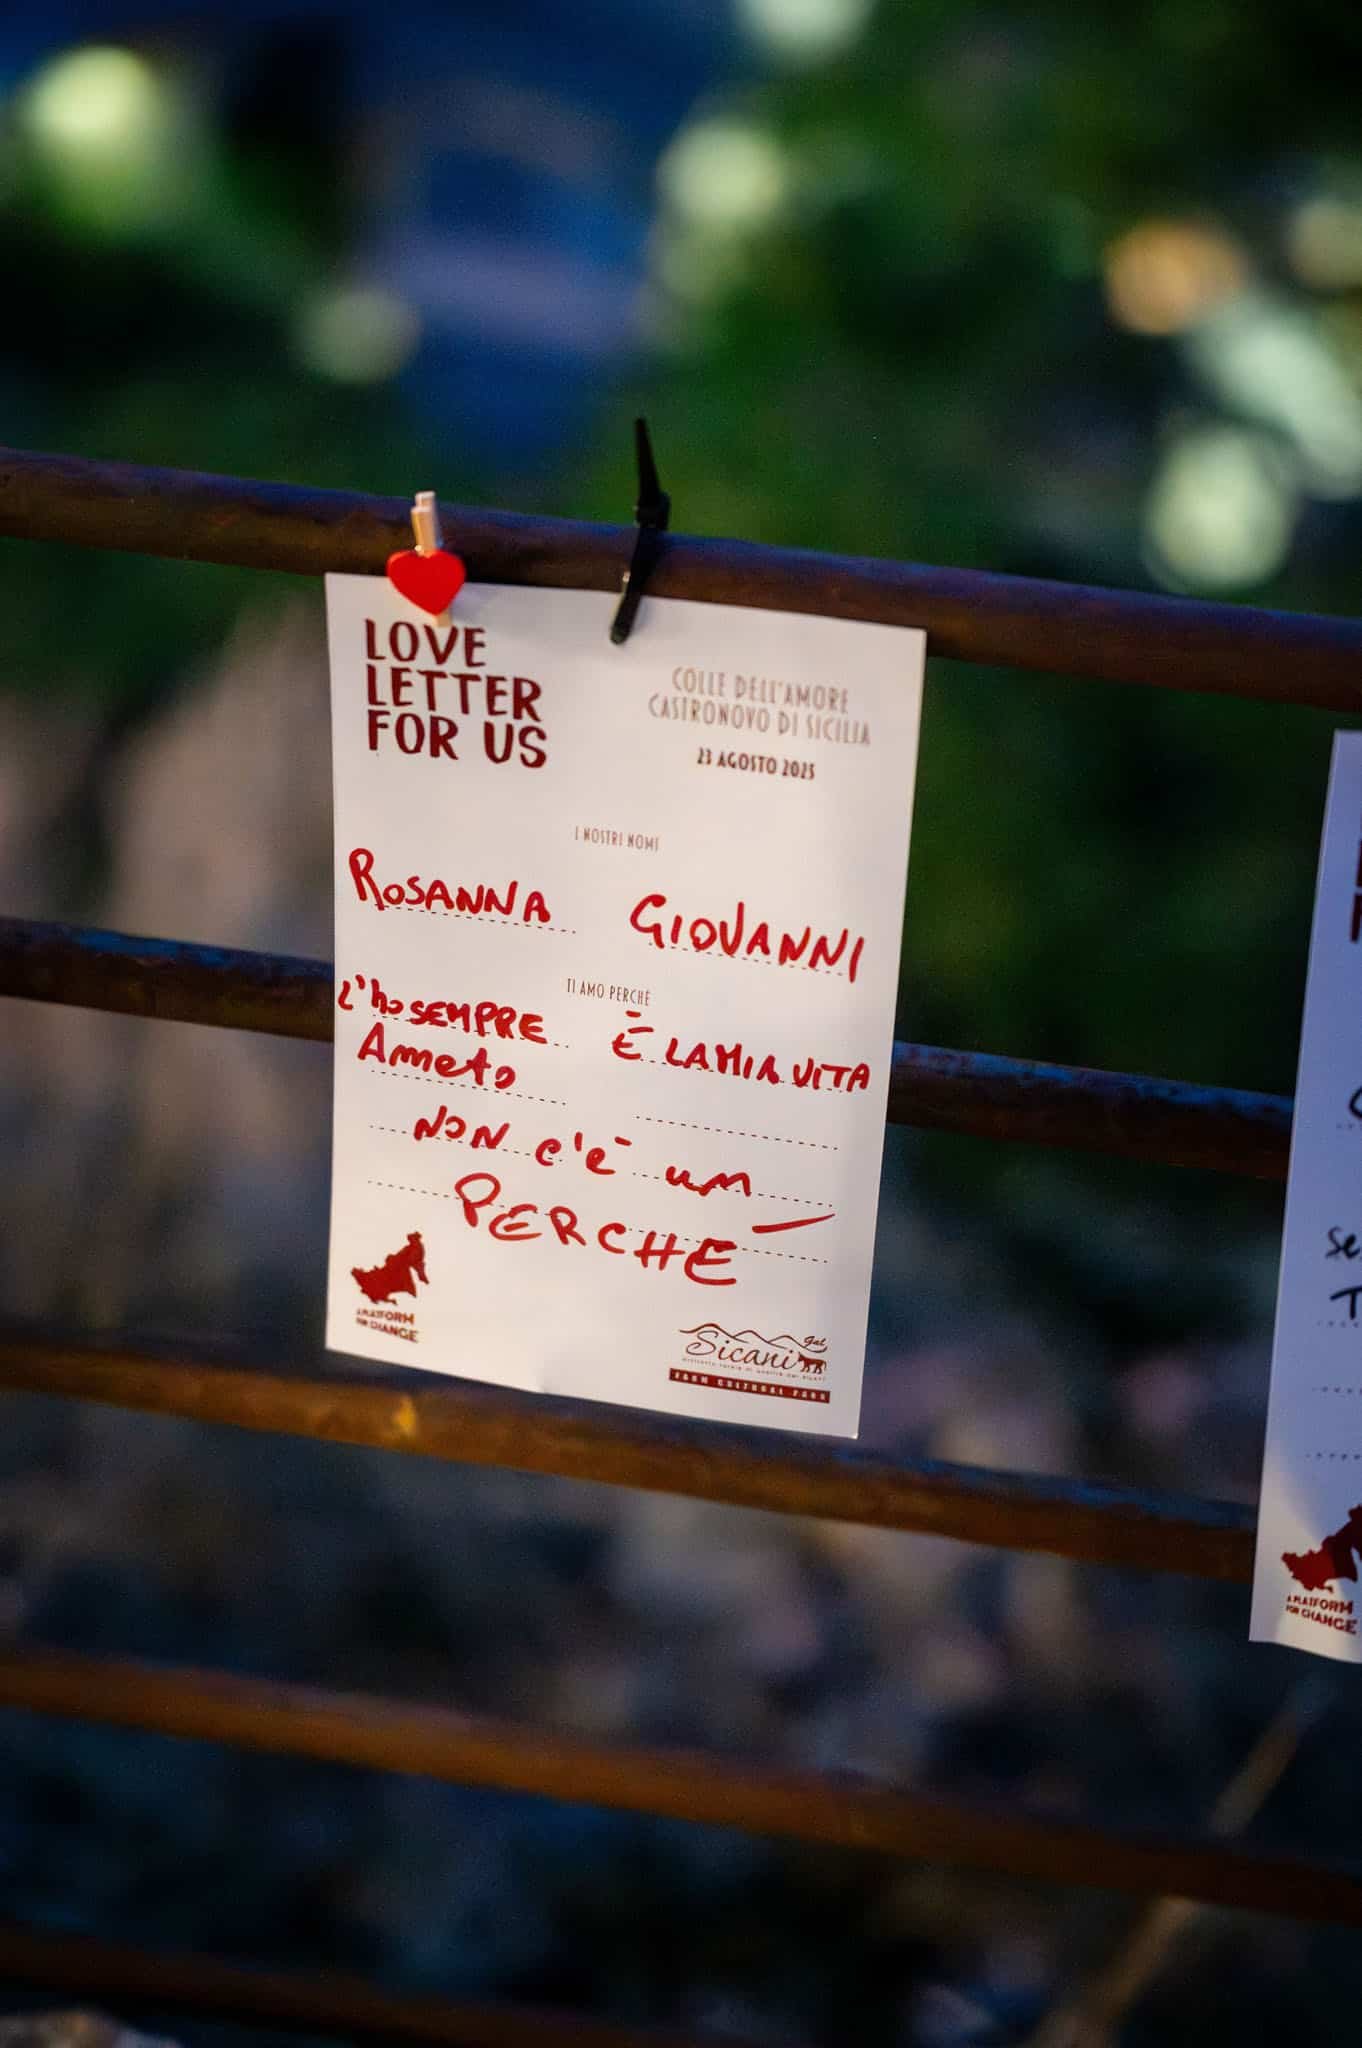 LOVE
LETTER
FOR US
COLLE DELL'AMORE
CASTRONOVO DI SICILIA
23 AGOSTO 2025
I NOSTRI NOMI
ROSANNA GIOVANNI
TI AMO PERCHÈ
L'ho SEMPRE
Ameto
È LA MIA VITA
NON c'è un
PERCHÉ
A PLATFORM
FOR CHANGE
Gal
Sicani
FARM CULTURAL PARK
Se
T
A PLATFORM
FOR CHANGE